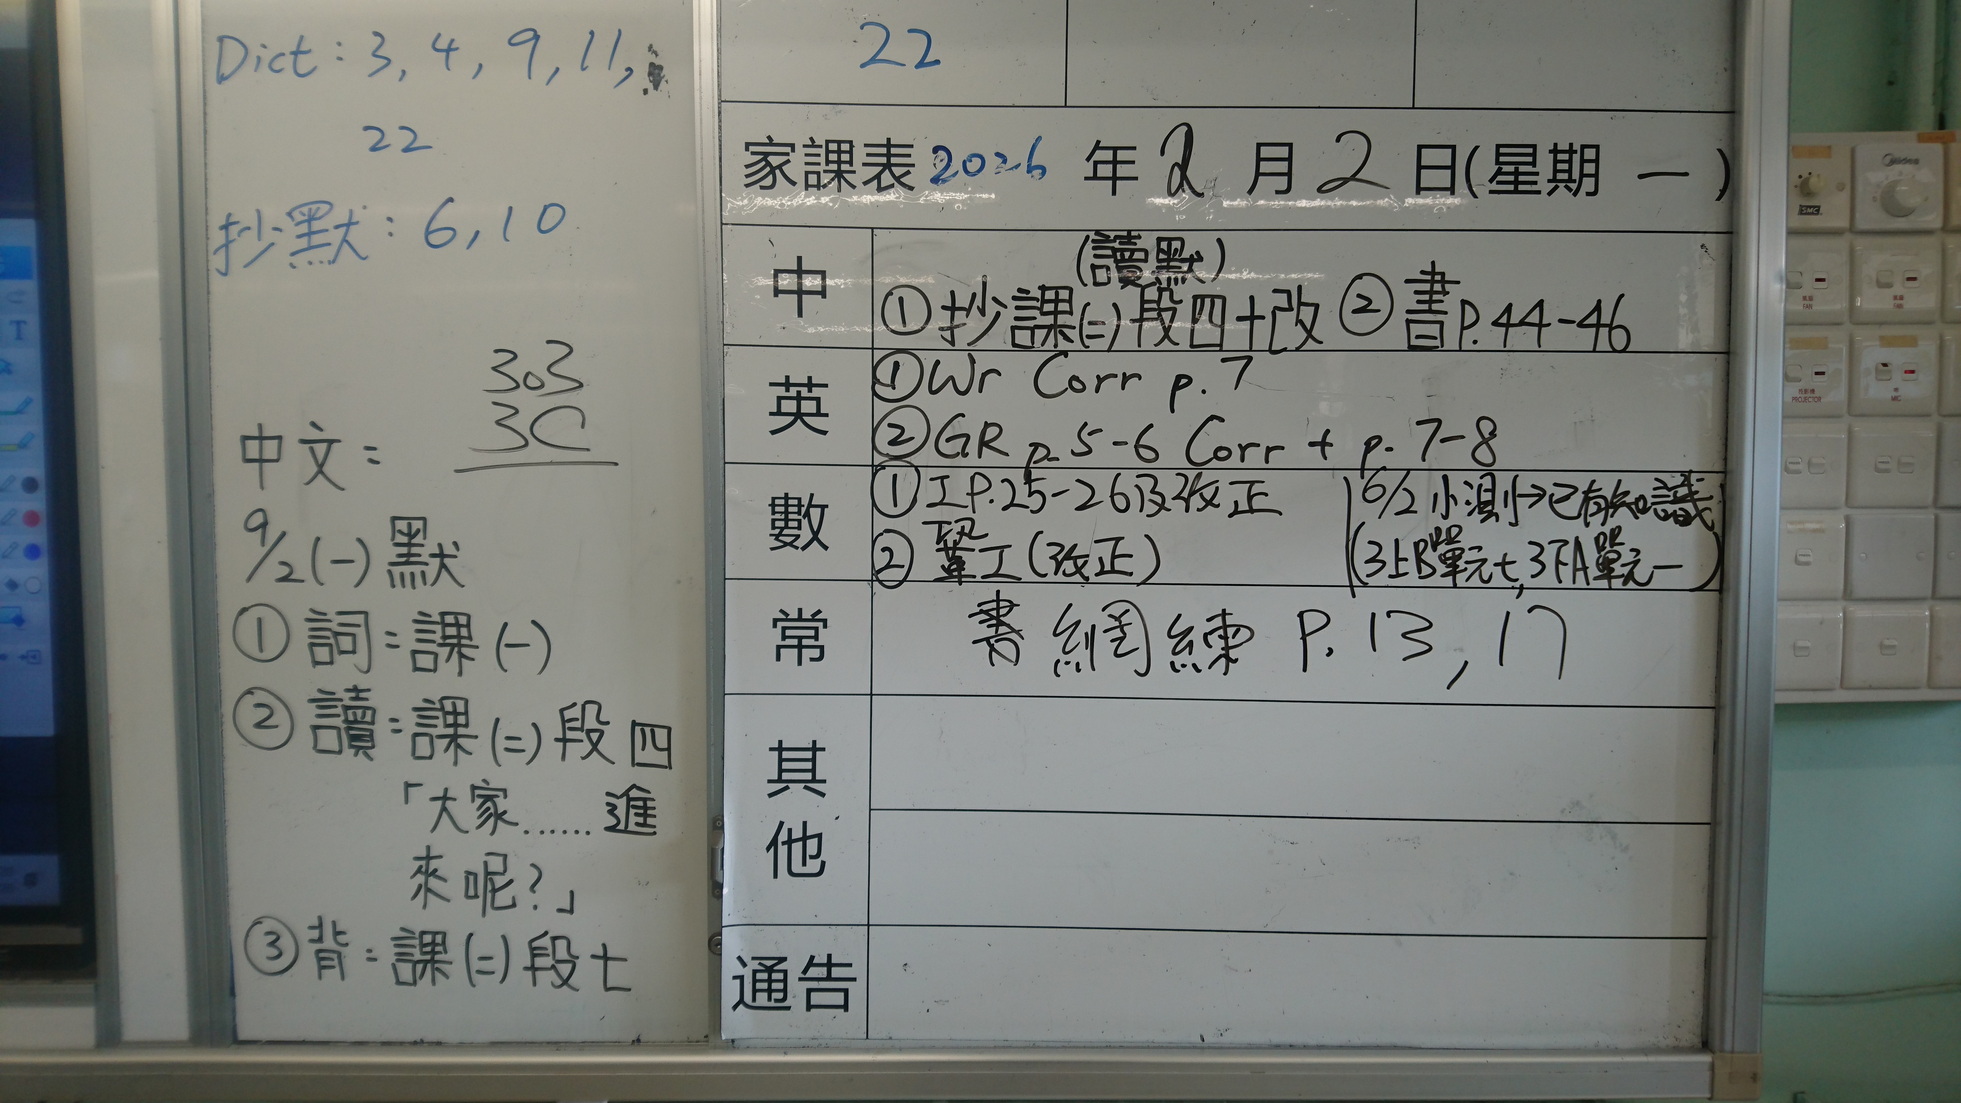 Dict: 3, 4, 9, 11,
22
抄默: 6, 10
303
3C
中文:
9/2(一)默
①詞:課(一)
②讀:課(二)段四
「大家......進
來呢?」
③背:課(二)段七
22
家課表2026年2月2日(星期一)
中
(讀默)
①抄課(二)段四+改 ②書P.44-46
英
①Wr Corr p.7
②GR p.5-6 Corr + p.7-8
數
①工P.25-26及改正
②鞏工(改正)
6/2小測→已有知識
(3上B單元七,3下A單元一)
常
書 網 練 P.13, 17
其他
通告
Midea
SMC
FAN
FAN
PROJECTOR
MIC
T